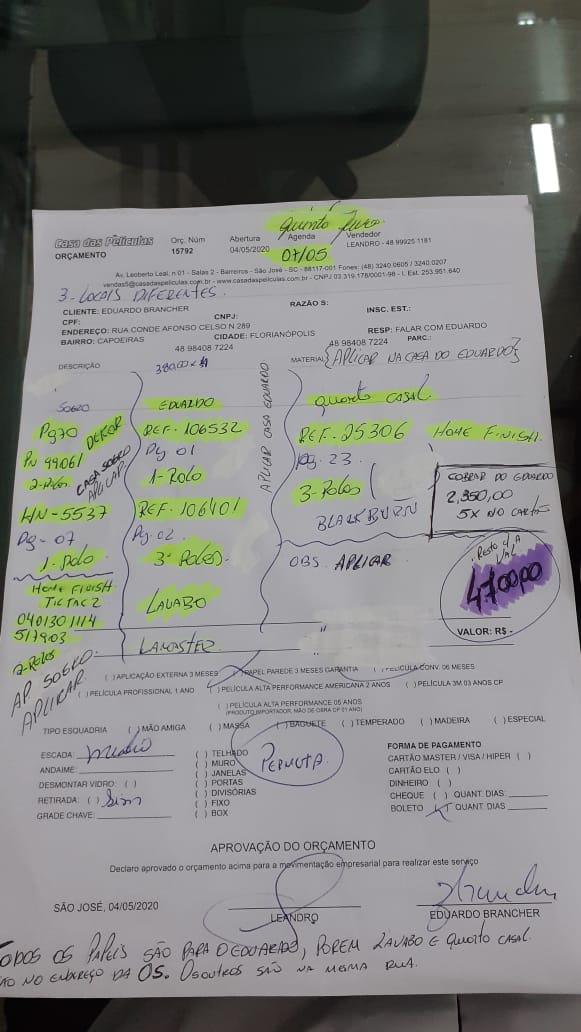 Quinta Feira
Casa das Películas
ORÇAMENTO
Orç. Núm
15792
Abertura
04/05/2020
Agenda
07/05
Vendedor
LEANDRO - 48 99925 1181
Av. Leoberto Leal, n 01 - Salas 2 - Barreiros - São José - SC - 88117-001 Fones: (48) 3240.0605 / 3240.0207
vendas5@casadaspeliculas.com.br - www.casadaspeliculas.com.br - CNPJ 03.319.178/0001-98 - I. Est. 253.951.640
3 - LOCAIS DIFERENTES.
CLIENTE: EDUARDO BRANCHER
RAZÃO S:
CPF:
CNPJ:
INSC. EST.:
ENDEREÇO: RUA CONDE AFONSO CELSO N 289
BAIRRO: CAPOEIRAS
CIDADE: FLORIANÓPOLIS
RESP: FALAR COM EDUARDO
48 98408 7224
48 98408 7224
PARC.:
DESCRIÇÃO
380,00 x 4
MATERIAL
{APLICAR NA CASA DO EDUARDO}
SOGRO
Pg 70
DEKOR
PN 99061
2-Rolos
CASA SOGRO
APLICAR
WN-5537
Pg-07
1-Rolo
HOME FINISH
TIC TAC 2
0401301114
517903
2-Rolos
AP SOGRO.
APLICAR
EDUARDO
REF. 106532
Pg 01
1-Rolo
REF. 106401
Pg. 02.
3-Rolos.
LAVABO
LANCASTER
APLICAR CASA EDUARDO
QUARTO CASAL.
REF. 25306 HOME FINISH.
Pg. 23.
3-Rolos
BLACKBURN
OBS. APLICAR
COBRAR DO EDUARDO
2,350,00
5X NO CARTÃO
4.700,00
VALOR: R$ -
( ) APLICAÇÃO EXTERNA 3 MESES
PAPEL PAREDE 3 MESES GARANTIA
PELÍCULA CONV. 06 MESES
( ) PELÍCULA PROFISSIONAL 1 ANO
( ) PELÍCULA ALTA PERFORMANCE AMERICANA 2 ANOS
( ) PELÍCULA 3M 03 ANOS CP
( ) PELÍCULA ALTA PERFORMANCE 05 ANOS
(PRODUTO IMPORTADOR, MÃO DE OBRA CP 01 ANO)
TIPO ESQUADRIA
( ) MÃO AMIGA
( ) MASSA
( ) BAGUETE
( ) TEMPERADO
( ) MADEIRA
( ) ESPECIAL
ESCADA:
ANDAIME:
DESMONTAR VIDRO: ( )
RETIRADA: ( ) Sim
GRADE CHAVE:
( ) TELHADO
( ) MURO
( ) JANELAS
( ) PORTAS
( ) DIVISÓRIAS
( ) FIXO
( ) BOX
PERMUTA.
FORMA DE PAGAMENTO
CARTÃO MASTER / VISA / HIPER ( )
CARTÃO ELO ( )
DINHEIRO ( )
CHEQUE ( ) QUANT. DIAS:
BOLETO QUANT. DIAS
APROVAÇÃO DO ORÇAMENTO
Declaro aprovado o orçamento acima para a movimentação empresarial para realizar este serviço
SÃO JOSÉ, 04/05/2020
LEANDRO
EDUARDO BRANCHER
TODOS OS PAPEIS SÃO PARA O EDUARDO, POREM LAVABO E QUARTO CASAL
SÃO NO ENDEREÇO DA OS. OS OUTROS SÃO NA MESMA RUA.